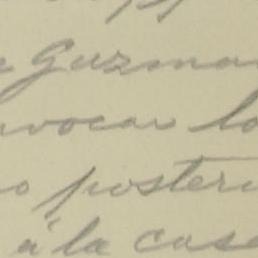 e Guzman
nvocar lo
o posteri
á la case